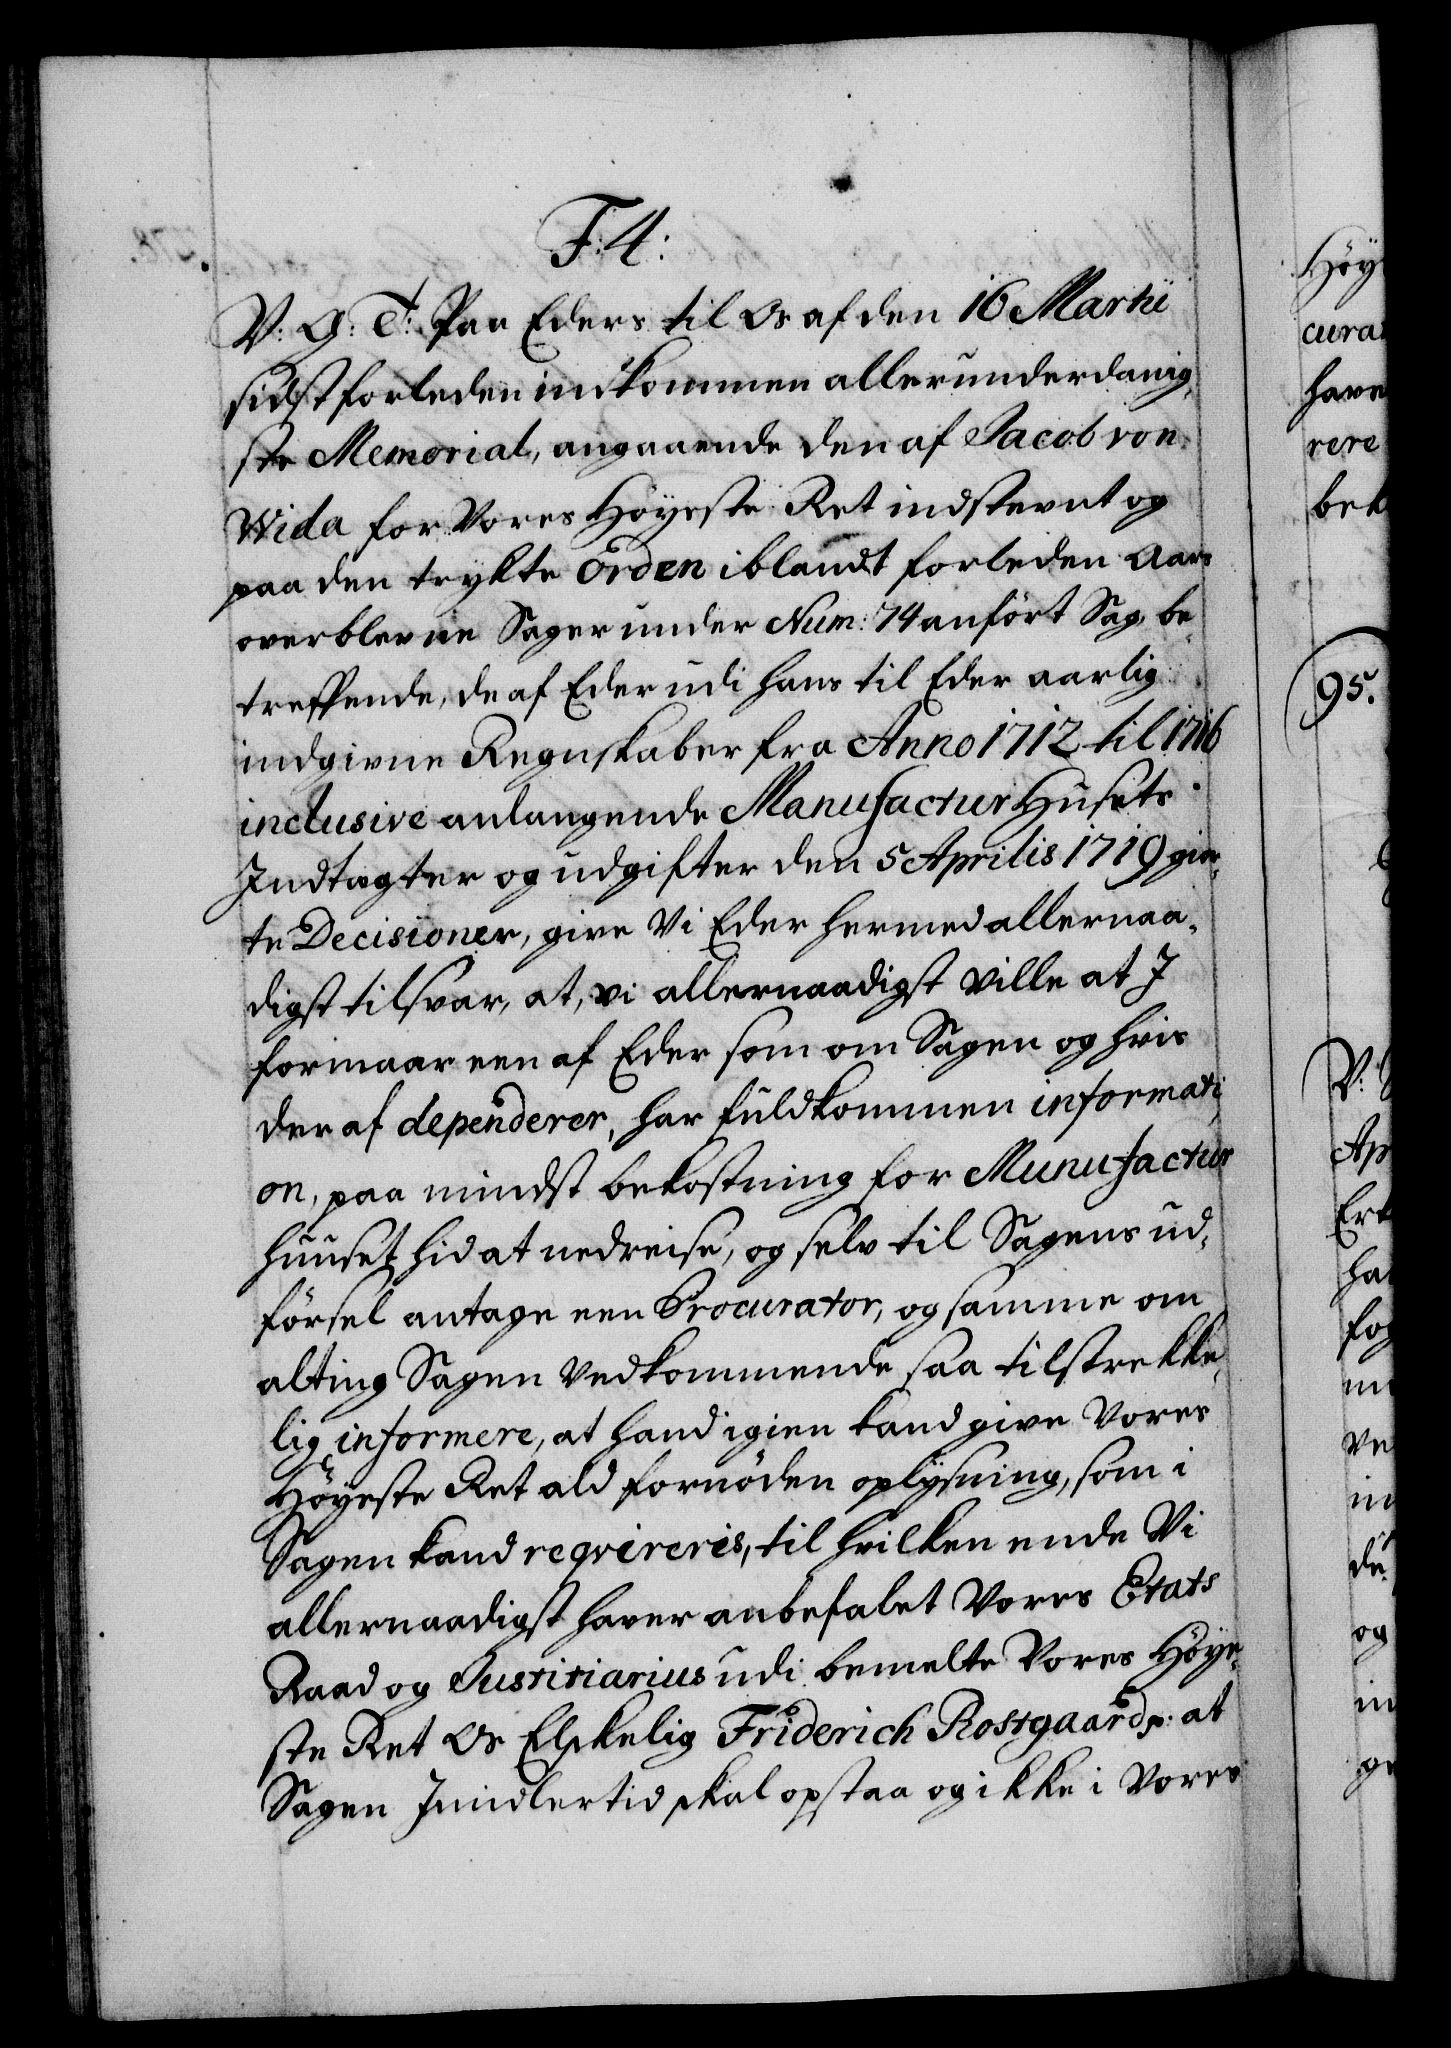 F: 4:
V: G: T: Paa Eders til Os af den 16 Martii
sidstforleden indkommen allerunderdanig-
ste Memorial, angaaende den af Jacob von
Wida for Vores Höyeste Ret indstevnt og
paa den trykte Orden iblandt forleden Aars
overblevne Sager under Num: 74 anfört Sag, be-
treffende, de af Eder udi hans til Eder aarlig
indgivne Regnskaber fra Anno 1712 til 1716
inclusive anlangende Manufactur Husets
Indtægter og udgifter den 5 Aprilis 1719 gior-
te Decisioner, give Vi Eder hermed allernaa-
digst tilsvar, at, vi allernaadigst ville at I
formaar een af Eder som om Sagen og hvis
der af dependerer, har fuldkommen informati-
on, paa mindst bekostning for Munufactur
huuset hid at nedreise, og selv til Sagens ud-
försel antage een Procurator, og samme om
alting Sagen vedkommende saa tilstrekke-
lig informere, at hand igien kand give Vores
Höyeste Ret ald fornöden oplysning, som i
Sagen kand reqvireris, til hvilken ende Vi
allernaadigst haver anbefalet Vores Etats
Raad og Justitiarius udi bemelte Vores Höye-
ste Ret Os Elskelig Friderich Rostgaard p: at
Sagen Imidlertid skal opstaa og ikke i Vores
Höy
cura
have
rere
bek
95.
V:
Ap
Er
ha
fog
ve
in
de
og
in
ge